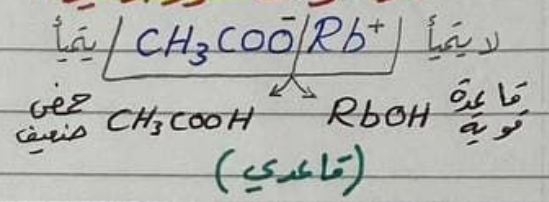 يتميأ / CH₃COO⁻ / Rb⁺ / لا يتميأ
حمض ضعيف CH₃COOH RbOH قاعدة قوية
(قاعدي)